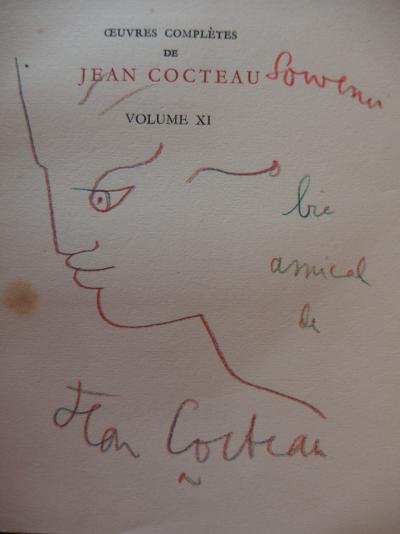 ŒUVRES COMPLÈTES
DE
JEAN COCTEAU
VOLUME XI
Souvenir
bie
amical
de
Jean Cocteau